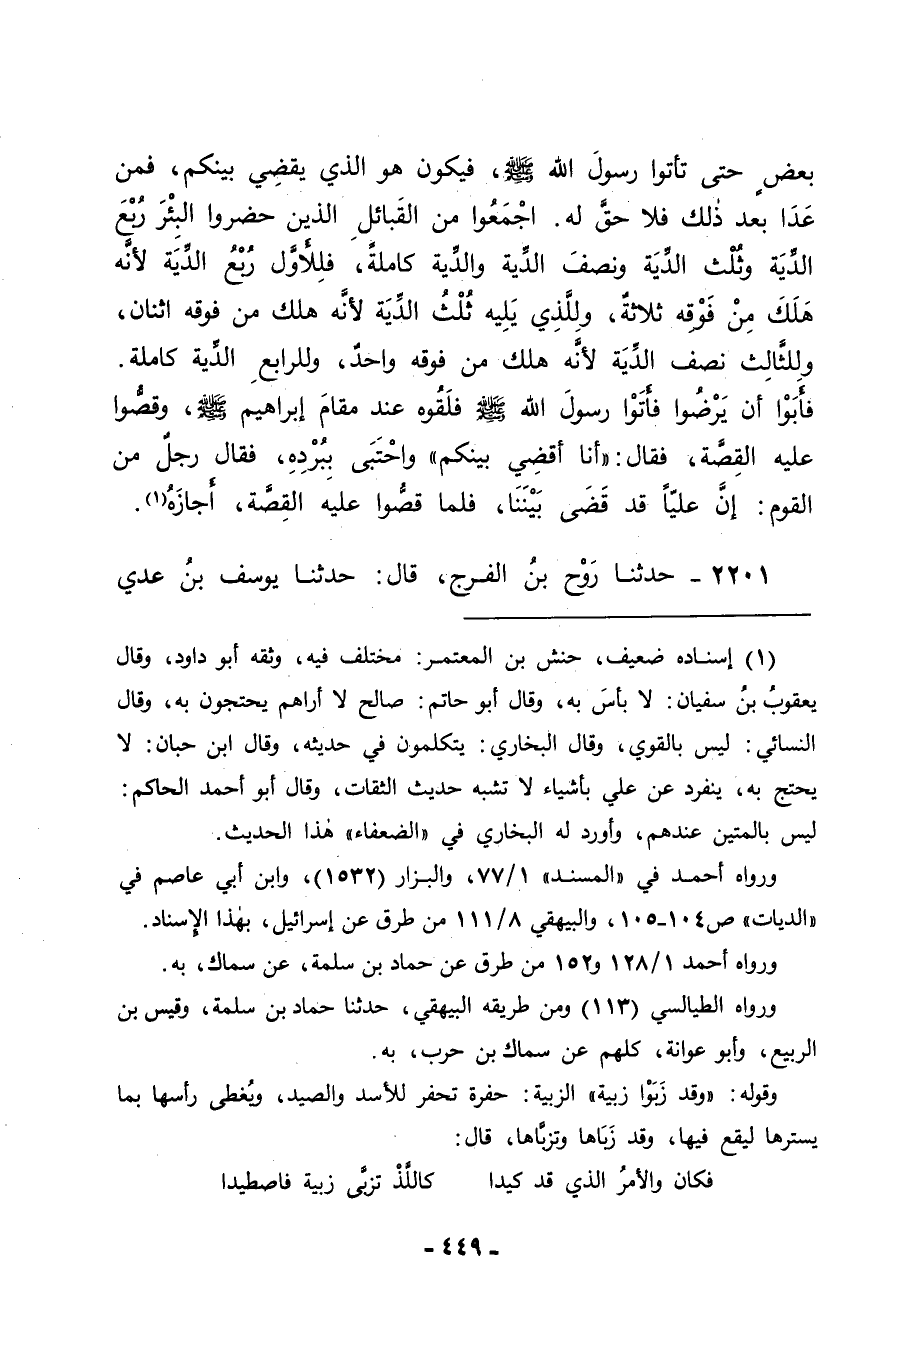 بعضٍ حتى تأتوا رسولَ الله ﷺ، فيكون هو الذي يقضِي بينكم، فمن
عَدَا بعد ذٰلك فلا حقَّ له. اجْمَعُوا من القَبائلِ الذين حضروا البِئْرَ رُبْعَ
الدِّيَة وثُلْث الدِّيَة ونصفَ الدِّية والدِّية كاملةً، فلِلأَوَّلِ رُبْعُ الدِّيَة لأنَّه
هَلَكَ مِنْ فَوْقِه ثلاثةٌ، وللَّذِي يَلِيه ثُلْثُ الدِّيَة لأنَّه هلك من فوقه اثنان،
وللثَّالِث نصف الدِّيَة لأنَّه هلك من فوقه واحدٌ، وللرابعِ الدِّية كاملة.
فأَبَوْا أن يَرْضُوا فأَتَوْا رسولَ الله ﷺ فلَقُوه عند مقامَ إبراهيم ﷺ، وقصُّوا
عليه القِصَّة، فقال: «أنا أقضِي بينكم» واحْتَبَى بِبُرْدِهِ، فقال رجلٌ من
القوم: إنَّ عليّاً قد قَضَى بَيْنَنَا، فلما قصُّوا عليه القِصَّة، أَجازَهُ(١).
٢٢٠١ ـ حدثنا رَوْح بنُ الفرج، قال: حدثنا يوسف بنُ عدي
(١) إسناده ضعيف، حنش بن المعتمر: مختلف فيه، وثقه أبو داود، وقال
يعقوبُ بنُ سفيان: لا بأسَ به، وقال أبو حاتم: صالح لا أراهم يحتجون به، وقال
النسائي: ليس بالقوي، وقال البخاري: يتكلمون في حديثه، وقال ابن حبان: لا
يحتج به، ينفرد عن علي بأشياء لا تشبه حديث الثقات، وقال أبو أحمد الحاكم:
ليس بالمتين عندهم، وأورد له البخاري في «الضعفاء» هٰذا الحديث.
ورواه أحمد في «المسند» ٧٧/١، والبزار (١٥٣٢)، وابن أبي عاصم في
«الديات» ص١٠٤-١٠٥، والبيهقي ١١١/٨ من طرق عن إسرائيل، بهٰذا الإِسناد.
ورواه أحمد ١٢٨/١ و١٥٢ من طرق عن حماد بن سلمة، عن سماك، به.
ورواه الطيالسي (١١٣) ومن طريقه البيهقي، حدثنا حماد بن سلمة، وقيس بن
الربيع، وأبو عوانة، كلهم عن سماك بن حرب، به.
وقوله: «وقد زَبَوْا زبية» الزبية: حفرة تحفر للأسد والصيد، ويُغطى رأسها بما
يسترها ليقع فيها، وقد زَبَاها وتزبَّاها، قال:
فكان والأمرُ الذي قد كيدا كاللَّذْ تزبَّى زبية فاصطيدا
ـ ٤٤٩ ـ